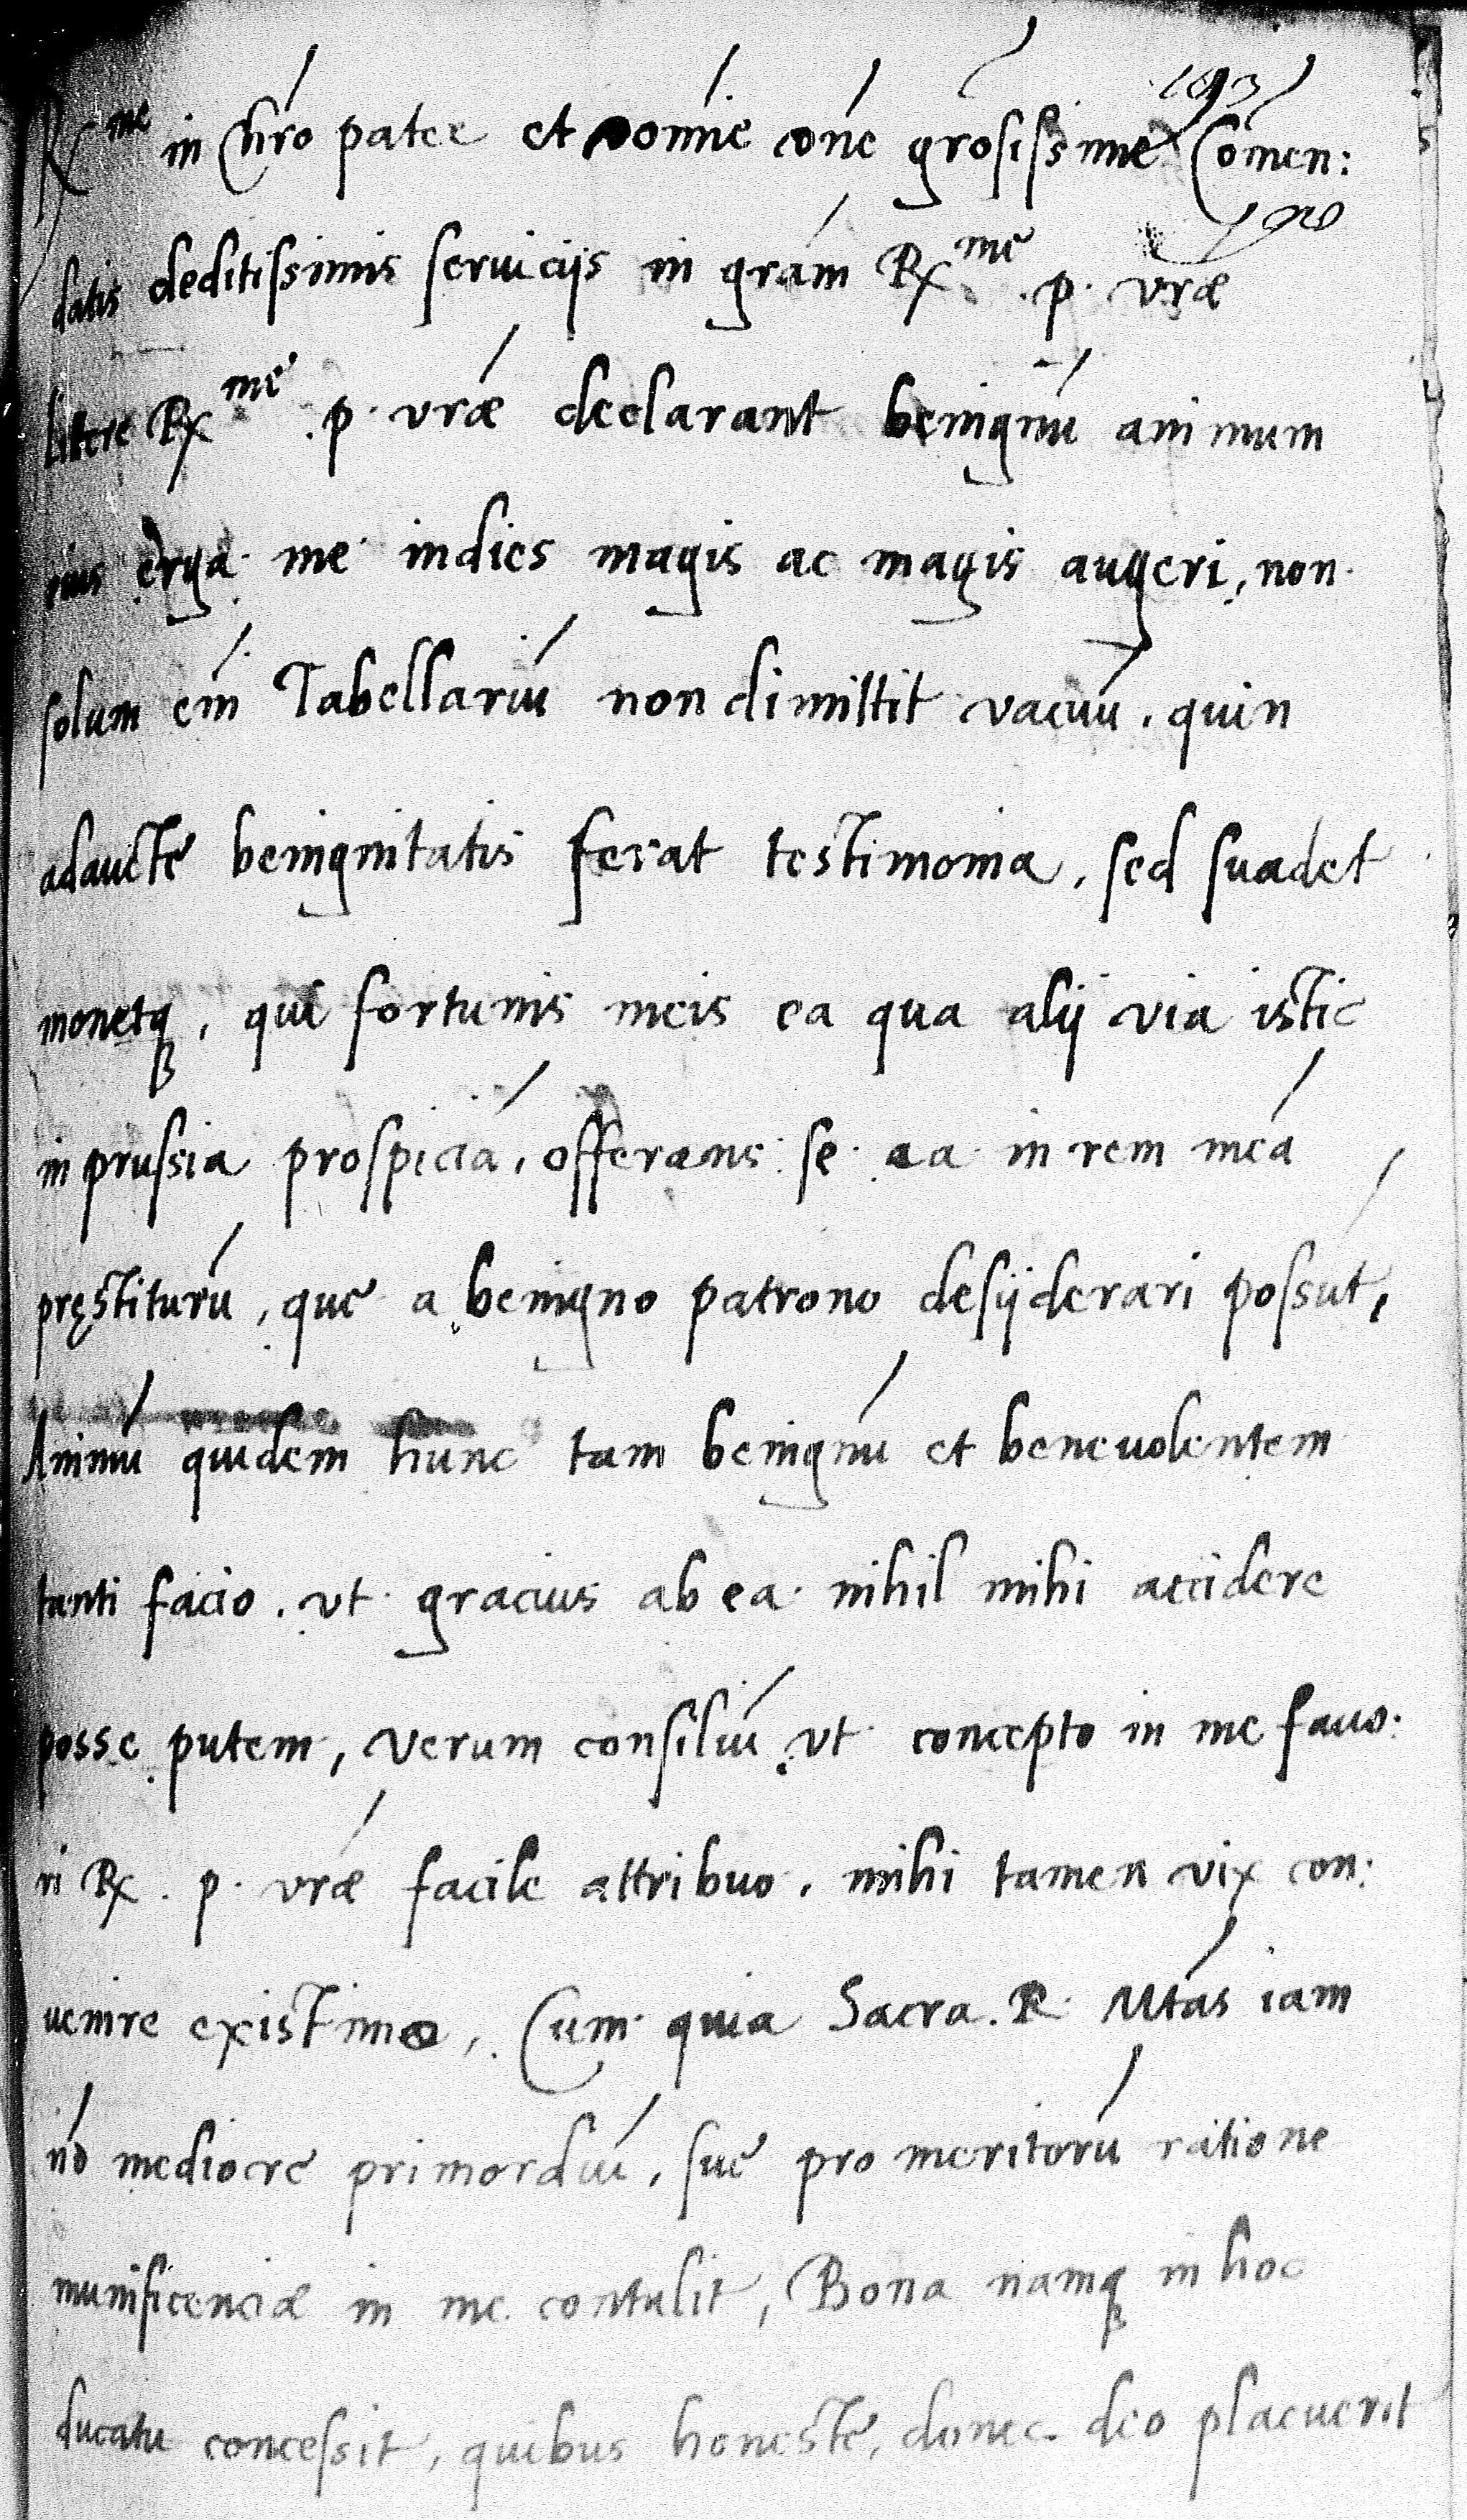 193
Rx me in Chro patre et domine dne grosissime Comen:
datis deditissimis seruicijs in gram Rx me . p . vræ
littere Rx me . p . vræ declarant benignu animum
eius erga me indies magis ac magis augeri, non
solum em Tabellariu non dimittit vacuu . quin
aducte benignitatis ferat testimonia, sed suadet
monetq, qui fortunis meis ea qua alij via istic
in prussia prospicia, offerans se ea in rem mea
pręstituru, que a benigno patrono desijderari possut,
Animu quidem hunc tam benignu et beneuolentem
tanti facio . vt gracius ab ea nihil mihi accidere
posse putem, verum consiliu vt concepto in me fauo:
ri Rx . p . vræ facile attribuo . mihi tamen vix con:
uenire existimo, . Cum quia Sacra . R . Mtas iam
no mediocre primordiu, sue pro meritoru ratione
munificenciæ in me contulit, Bona namq in hoc
ducatu concessit, quibus honeste, donec deo placuerit